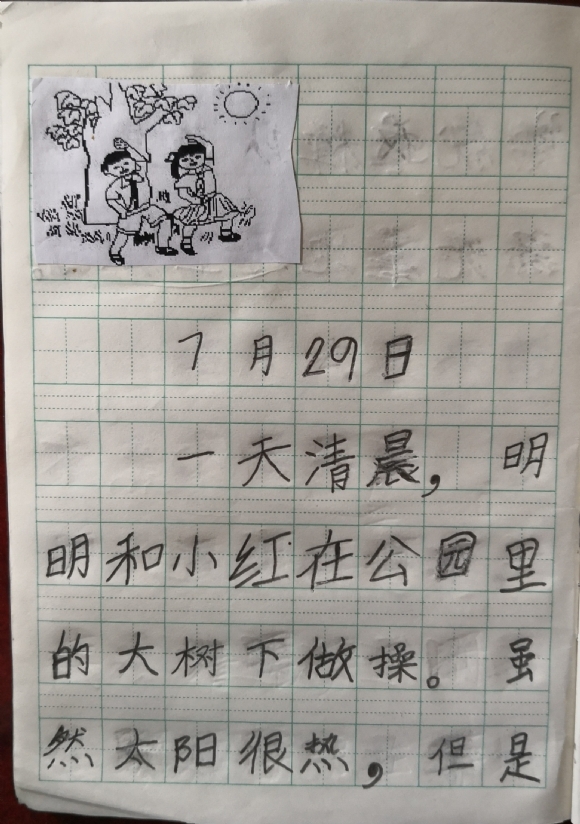 7月29日
一天清晨，明
明和小红在公园里
的大树下做操。虽
然太阳很热，但是